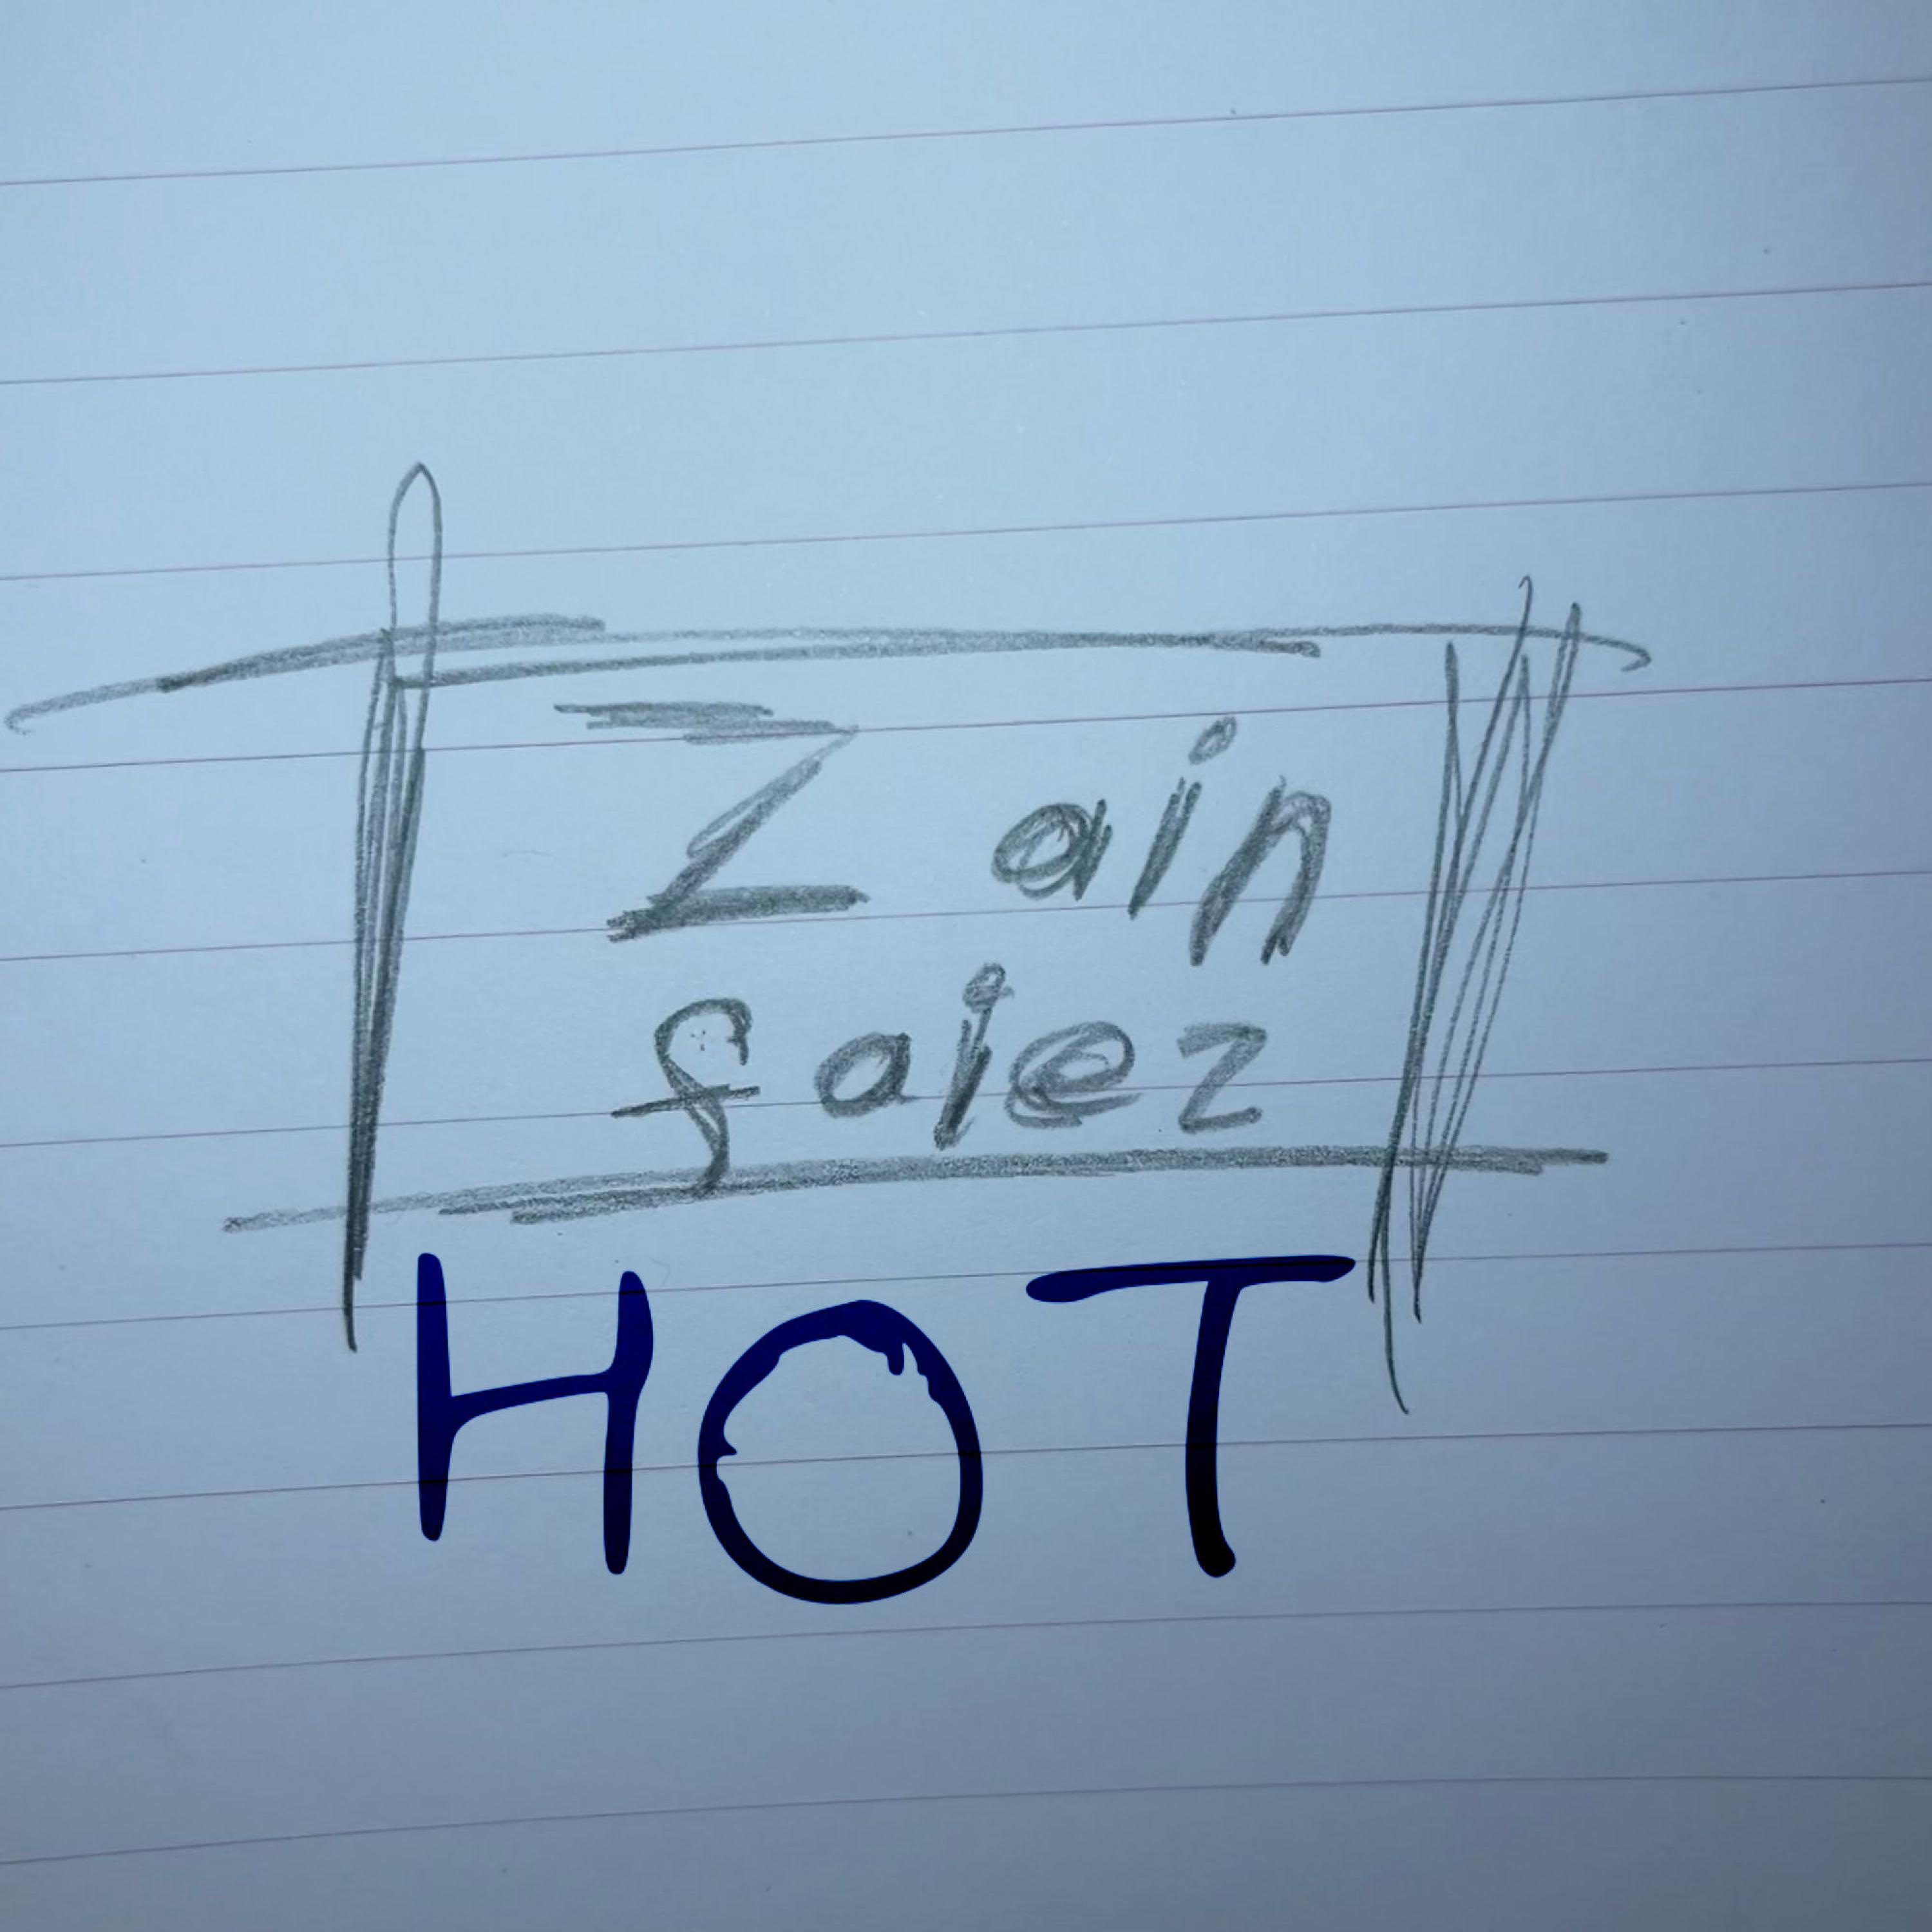 Zain
faiez
HOT